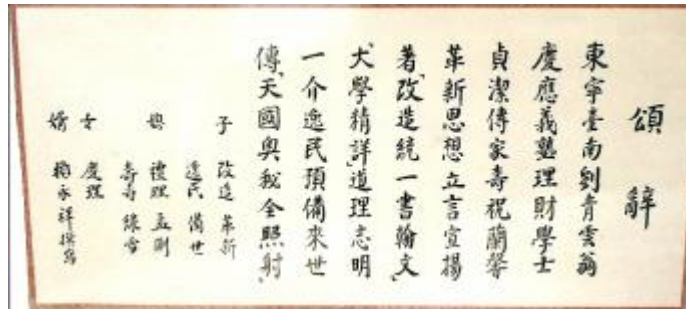 頌辭
東寧臺南劉青雲翁
慶應義塾理財學士
貞潔傳家壽祝蘭馨
革新思想立言宣揚
著「改造統一書翰文」
「大學精詳」道理志明
一介逸民預備來世
傳「天國奧秘全照射」
子 改造 革新
逸民 備世
與 禮理 孟則
壽壽 綠雪
女 慶理
婿 楊永祥撰寫